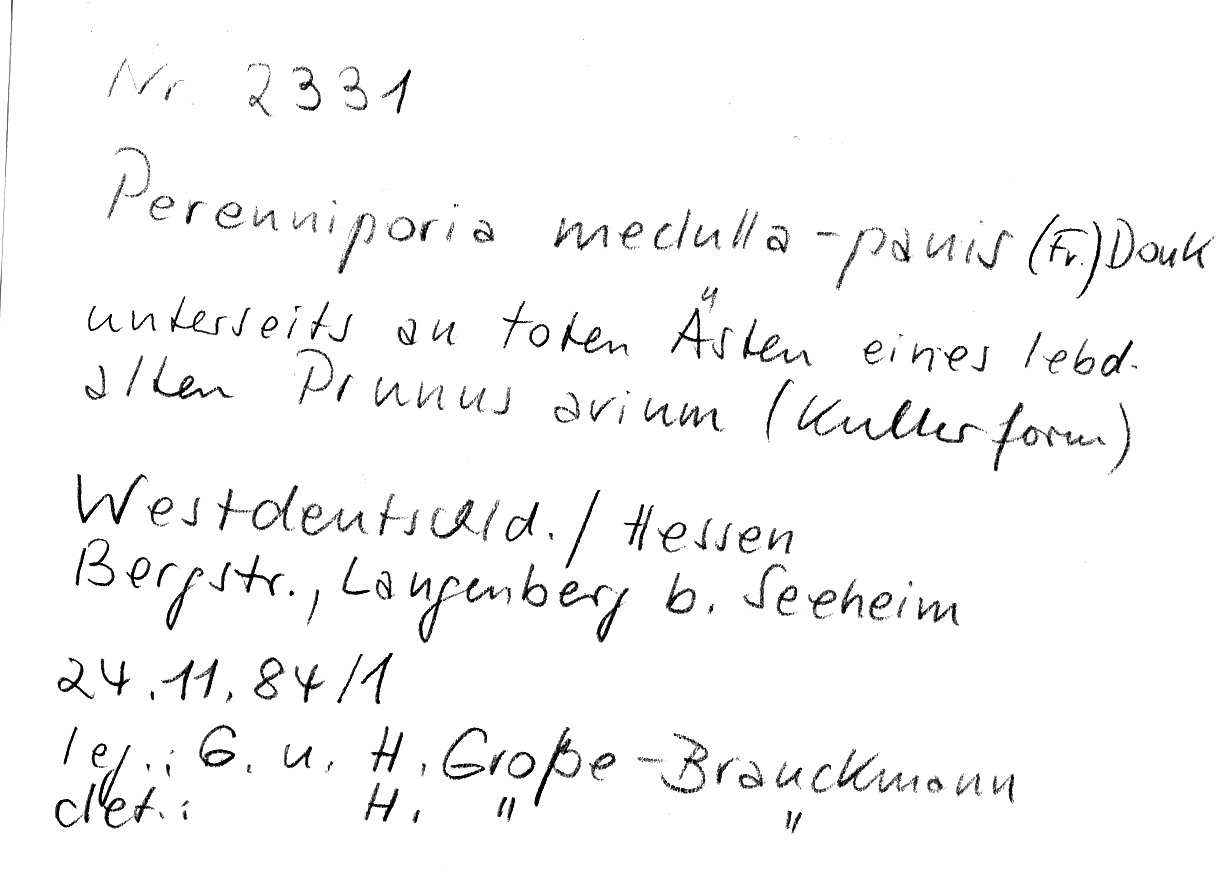 Nr. 2331
Perenniporia medulla-panis (Fr.) Donk
unterseits an toten Ästen eines lebd.
alten Prunus avium (Kulturform)
Westdeutschld. / Hessen
Bergstr., Langenberg b. Seeheim
24.11.84/1
leg.: G. u. H. Große-Brauckmann
det.: H. " "